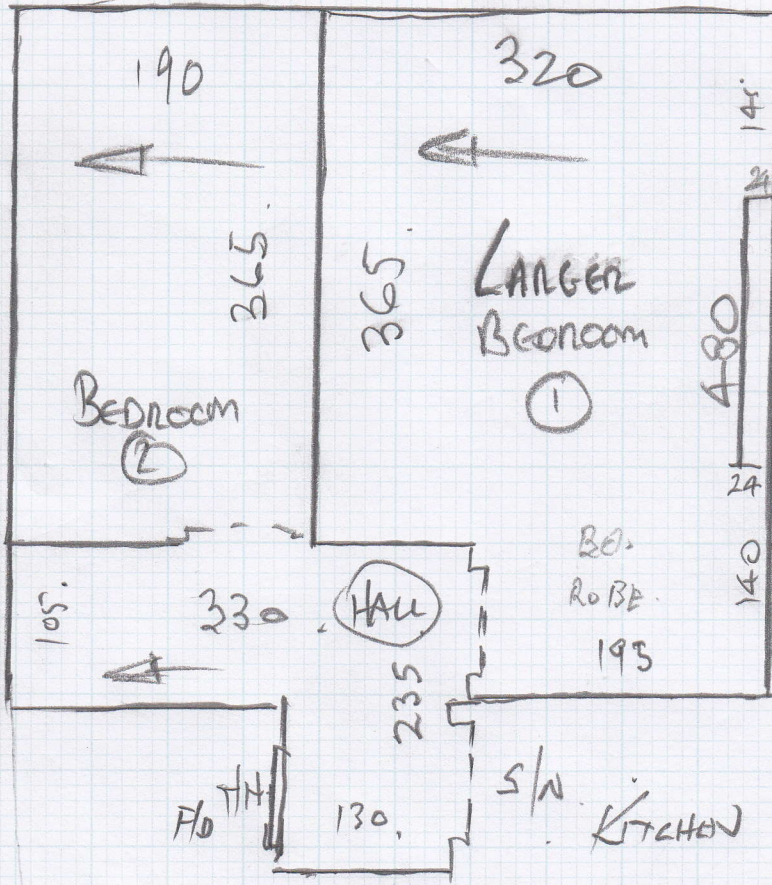 190
320
145
24
365.
365.
LARGER
BEDROOM
1
480
BEDROOM
2
24
BO.
ROBE.
140
105.
330
HALL
193
235
F/D
130.
S/N
KITCHEN